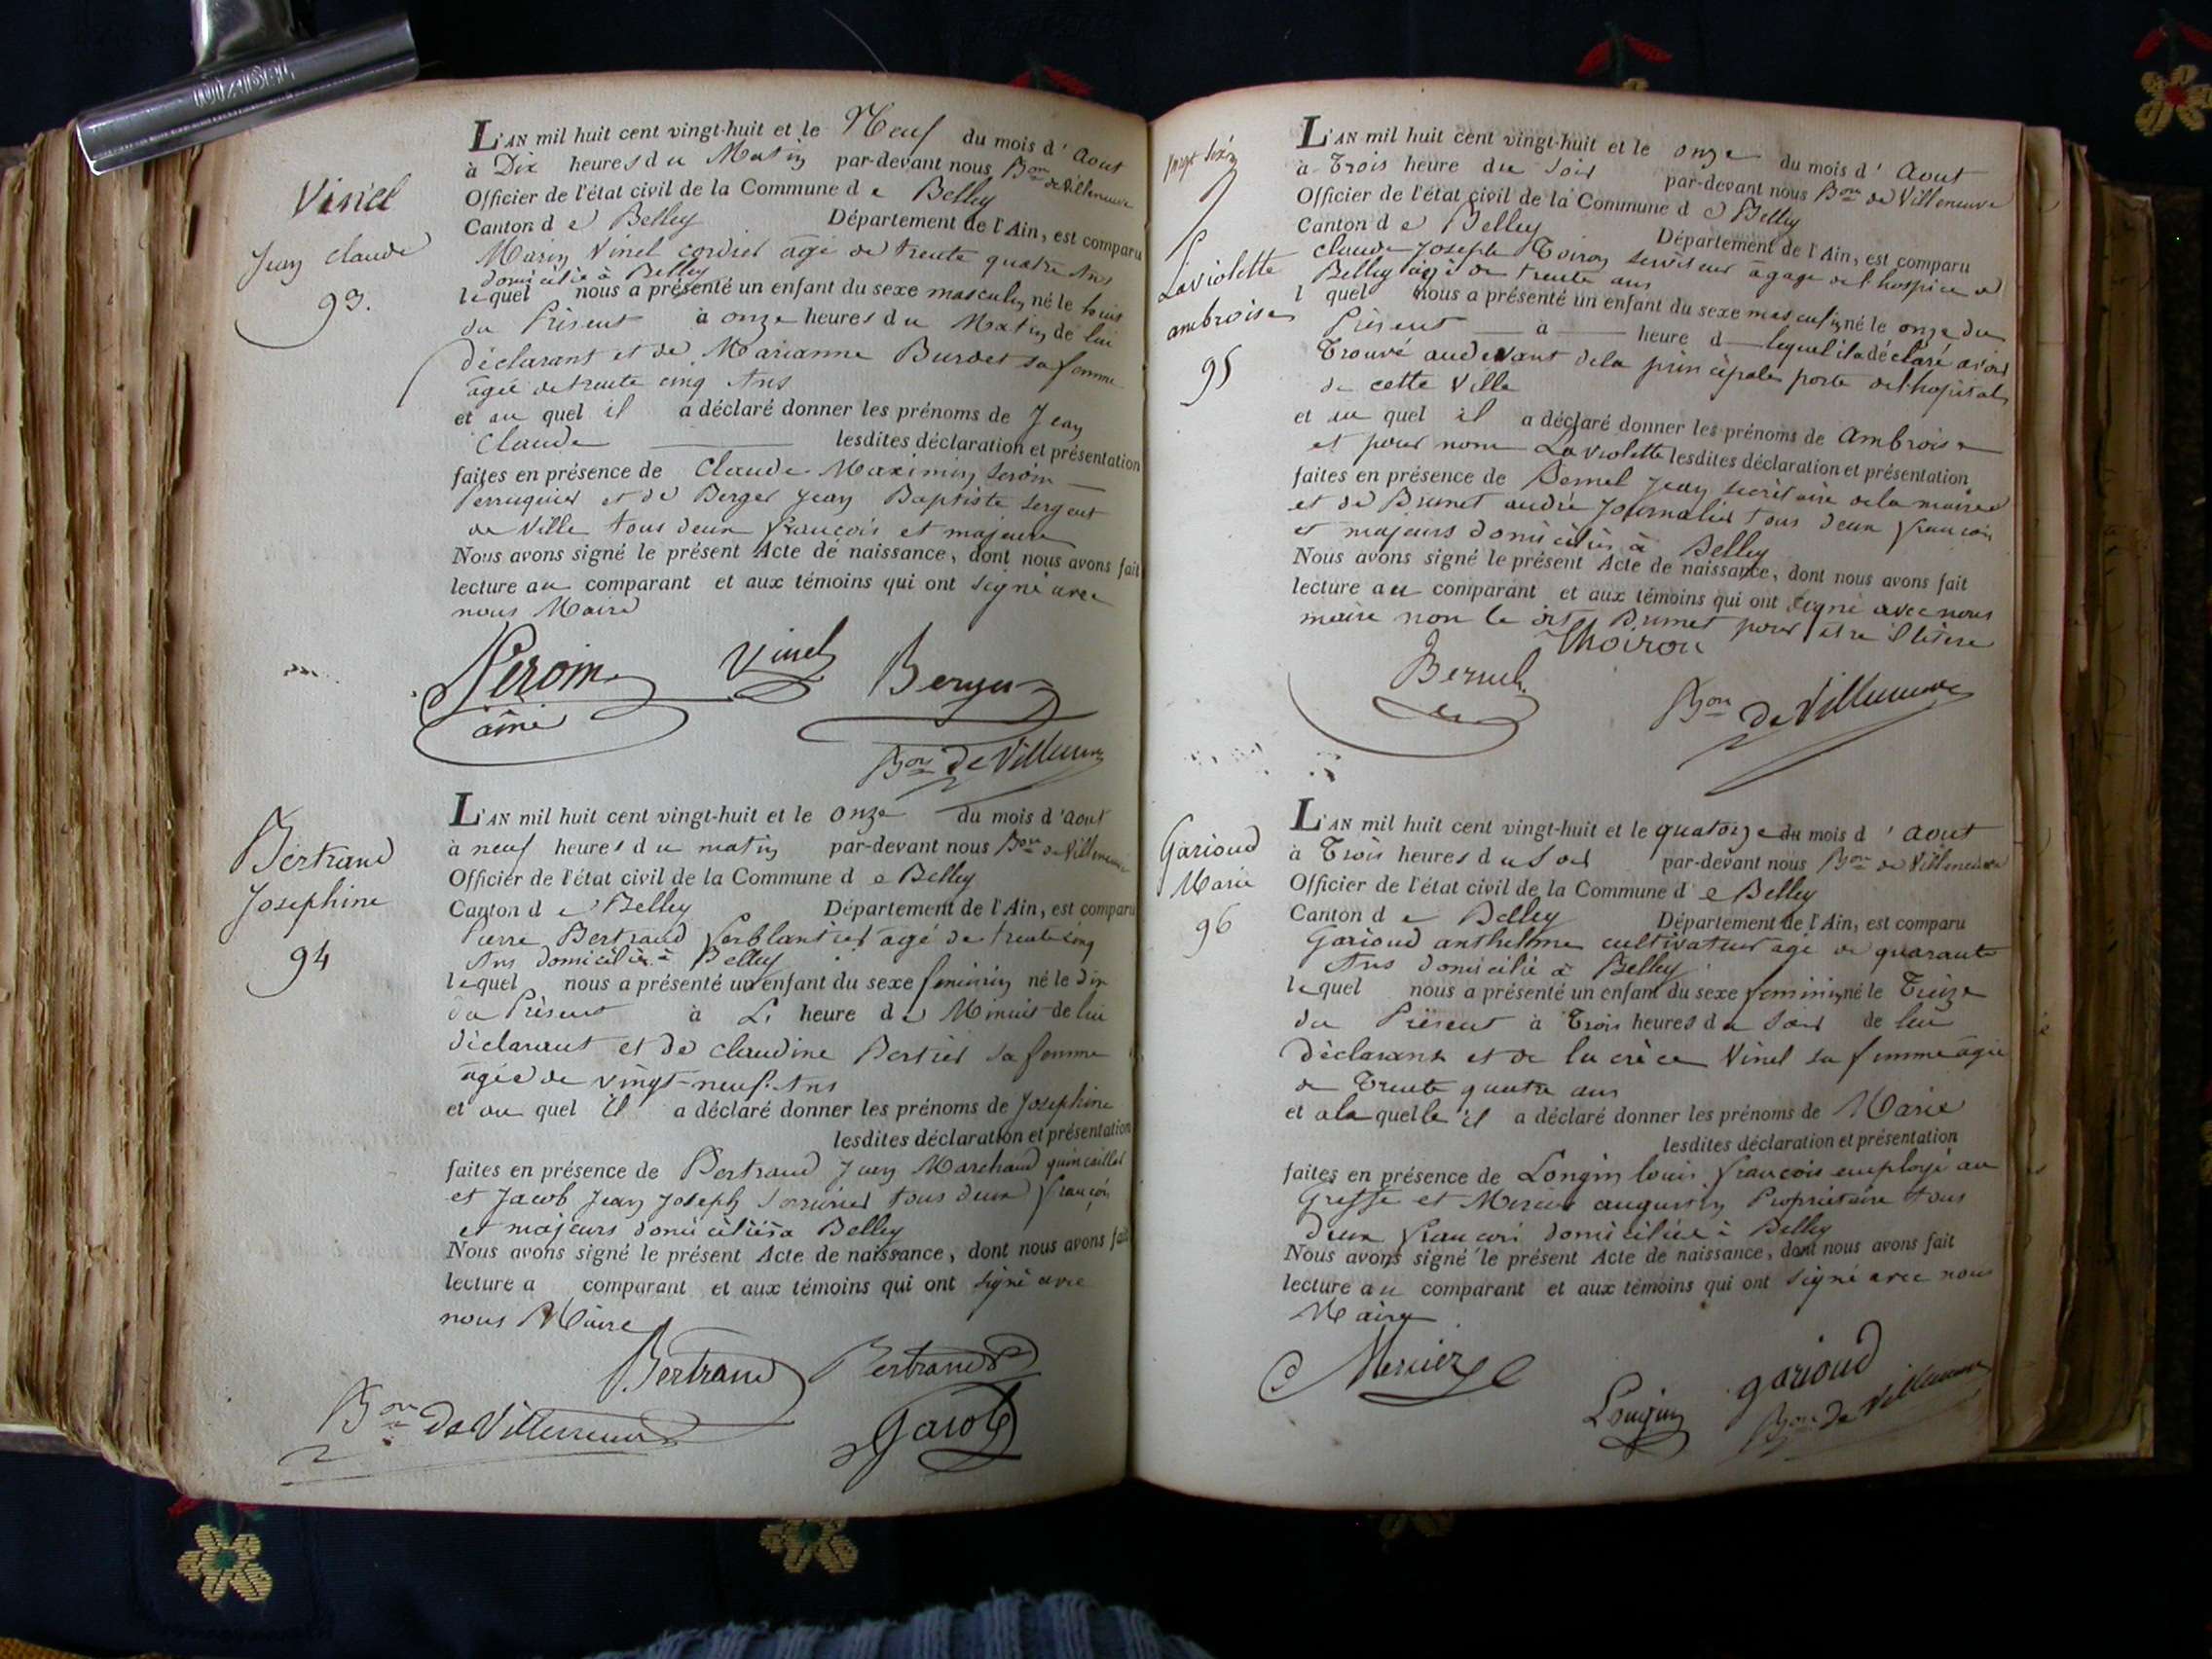 Vinel
Jean Claude
93.
L'AN mil huit cent vingt-huit et le Neuf du mois d' Aout
à Dix heures du Matin par-devant nous Bon de Villeneuve
Officier de l'état civil de la Commune de Belley
Canton de Belley Département de l'Ain, est comparu
Marin Vinel cordier agé de trente quatre Ans
domicilié à Belley
lequel nous a présenté un enfant du sexe masculin né le
du Présent à onze heures du Matin de lui
déclarant et de Marianne Burdet sa femme
agée de trente cinq Ans
et au quel il a déclaré donner les prénoms de Jean
Claude lesdites déclaration et présentation
faites en présence de Claude Maximin
Perruquier et de Berger Jean Baptiste Sergent
de Ville tous deux français et majeurs
Nous avons signé le présent Acte de naissance, dont nous avons fait
lecture au comparant et aux témoins qui ont signé avec
nous Maire
Vinel Berger
ainé
Bon de Villeneuve
Bertrand
Josephine
94
L'AN mil huit cent vingt-huit et le onze du mois d'aout
à neuf heures du matin par-devant nous Bon de Villeneuve
Officier de l'état civil de la Commune de Belley
Canton de Belley Département de l'Ain, est comparu
Pierre Bertrand ferblantier agé de trente cinq
Ans domicilié à Belley
lequel nous a présenté un enfant du sexe feminin né le dix
du Présent à heure de Minuit de lui
déclarant et de Claudine Bertier sa femme
agée de vingt-neuf Ans
et au quel il a déclaré donner les prénoms de Josephine
lesdites déclaration et présentation
faites en présence de Bertrand Jean Marchand quincailler
et Jacob Jean Joseph tous deux français
et majeurs domiciliés a Belley
Nous avons signé le présent Acte de naissance, dont nous avons fait
lecture a comparant et aux témoins qui ont signé avec
nous Maire
Bertrand Bertrand
Bon de Villeneuve Jacob
Laviolette
ambroise
95
L'AN mil huit cent vingt-huit et le onze du mois d' Aout
à Trois heure du soir par-devant nous Bon de Villeneuve
Officier de l'état civil de la Commune de Belley
Canton de Belley Département de l'Ain, est comparu
Claude Joseph Toiron serviteur à gage de l'hospice de
Belley agé de trente ans
l quel nous a présenté un enfant du sexe masculin né le onze du
Présent à heure d lequel il a déclaré avoir
Trouvé au devant de la principale porte de l'hopital
de cette Ville
et au quel il a déclaré donner les prénoms de Ambroise
et pour nom Laviolette lesdites déclaration et présentation
faites en présence de Bernel Jean secrétaire de la mairie
et de Brunet andré Journalier tous deux français
et majeurs domiciliés à Belley
Nous avons signé le présent Acte de naissance, dont nous avons fait
lecture au comparant et aux témoins qui ont signé avec nous
maire non le dit Brunet pour être illiteré
Thoiron
Bernel
Bon de Villeneuve
Garioud
Marie
96
L'AN mil huit cent vingt-huit et le quatorze du mois d' Aout
à Trois heures du Soir par-devant nous Bon de Villeneuve
Officier de l'état civil de la Commune de Belley
Canton de Belley Département de l'Ain, est comparu
Garioud anthelme cultivateur agé de quarante
Ans domicilié à Belley
lequel nous a présenté un enfant du sexe feminin né le Treize
du Présent à Trois heures du Soir de lui
déclarant et de lucrèce Vinel sa femme agée
de Trente quatre ans
et a laquelle il a déclaré donner les prénoms de Marie
lesdites déclaration et présentation
faites en présence de Longin louis françois employé au
Greffe et Mercier augustin Propriétaire tous
deux français domiciliés à Belley
Nous avons signé le présent Acte de naissance, dont nous avons fait
lecture au comparant et aux témoins qui ont signé avec nous
Maire
Mercier
Longin garioud
Bon de Villeneuve